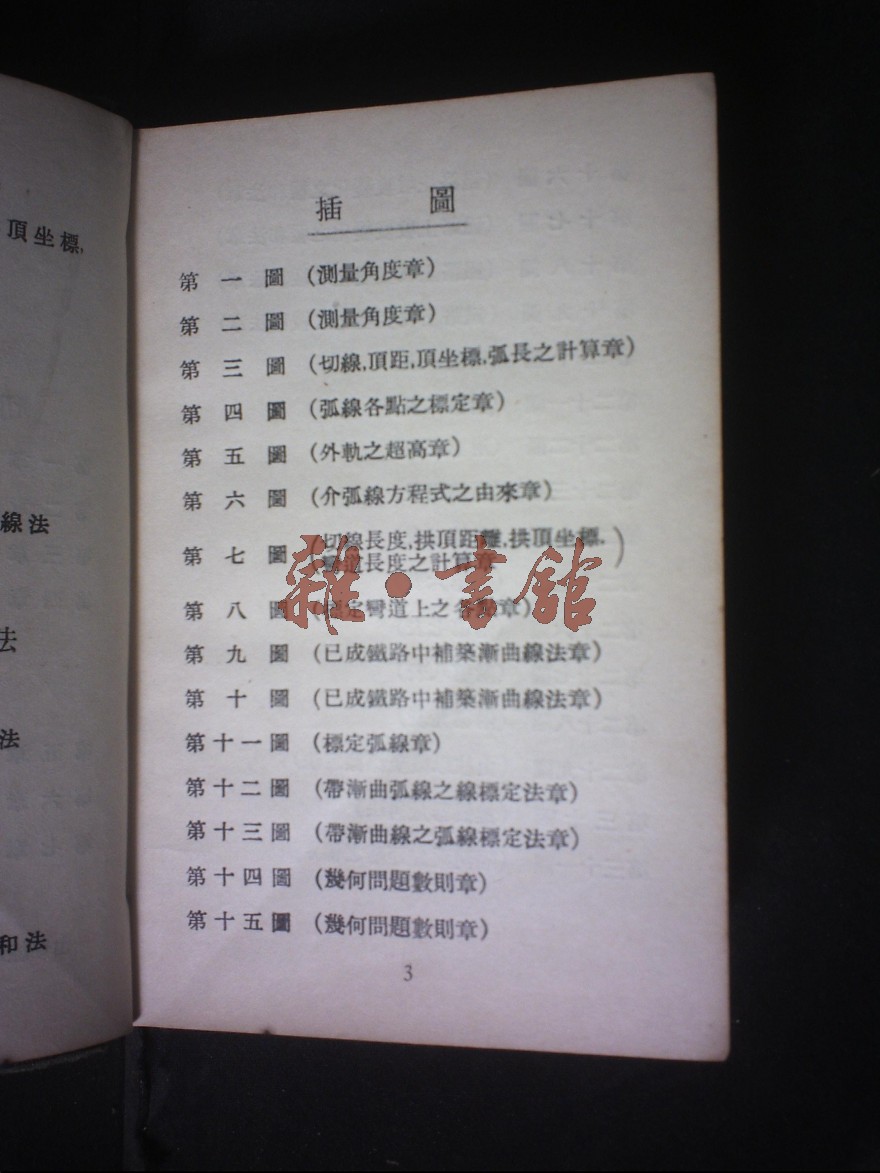 頂坐標,
線法
法
法
和法
插圖
第一圖 (測量角度章)
第二圖 (測量角度章)
第三圖 (切線,頂距,頂坐標,弧長之計算章)
第四圖 (弧線各點之標定章)
第五圖 (外軌之超高章)
第六圖 (介弧線方程式之由來章)
第七圖 (切線長度,拱頂距離,拱頂坐標,
彎道長度之計算章)
第八圖 (標定彎道上之各點章)
第九圖 (已成鐵路中補築漸曲線法章)
第十圖 (已成鐵路中補築漸曲線法章)
第十一圖 (標定弧線章)
第十二圖 (帶漸曲弧線之線標定法章)
第十三圖 (帶漸曲線之弧線標定法章)
第十四圖 (幾何問題數則章)
第十五圖 (幾何問題數則章)
3
雜·書館